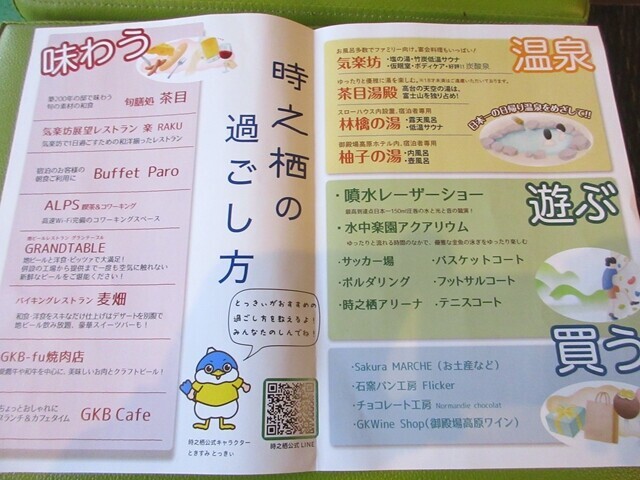 味わう
築200年の邸で味わう
旬の素材の和食
旬膳処 茶目
気楽坊展望レストラン 楽 RAKU
気楽坊で1日過ごすための和洋揃ったレストラン
宿泊のお客様の
朝食ご利用に
Buffet Paro
ALPS 喫茶&コワーキング
高速Wi-Fi完備のコワーキングスペース
地ビールレストラン グランテーブル
GRANDTABLE
地ビールと洋食・ピッツァで大満足!
併設の工場から提供まで一度も空気に触れない
新鮮なビールをご堪能ください!
バイキングレストラン 麦畑
和食・洋食をスキなだけ仕上げはデザートを別腹で
地ビール飲み放題、豪華スイーツバーも!
GKB-fu焼肉店
豊農牛や和牛を中心に、美味しいお肉とクラフトビール!
ちょっとおしゃれに
ランチ&カフェタイム
GKB Cafe
時之栖の
過ごし方
とっきぃがおすすめの
過ごし方を教えるよ!
みんなたのしんでね!
時之栖公式キャラクター
ときすみ とっきぃ
時之栖公式LINE
温泉
お風呂多数でファミリー向け。宴会料理もいっぱい!
気楽坊
・塩の湯・竹炭低温サウナ
・仮眠室・ボディケア・好評!! 炭酸泉
ゆったりと優雅に湯を楽しむ。
茶目湯殿
高台の天空の湯は、
富士山を独り占め!
スローハウス内設置、宿泊者専用
林檎の湯
・露天風呂
・低温サウナ
日本一の日帰り温泉をめざして!!
御殿場高原ホテル内、宿泊者専用
柚子の湯
・内風呂
・壺風呂
遊ぶ
・噴水レーザーショー
最高到達点日本一150m圧巻の水と光と音の競演!
・水中楽園アクアリウム
ゆったりと流れる時間のなかで、優雅な金魚の泳ぎをゆったり楽しむ
・サッカー場
・バスケットコート
・ボルダリング
・フットサルコート
・時之栖アリーナ
・テニスコート
買う
・Sakura MARCHE(お土産など)
・石窯パン工房 Flicker
・チョコレート工房 Normandie chocolat
・GKWine Shop(御殿場高原ワイン)